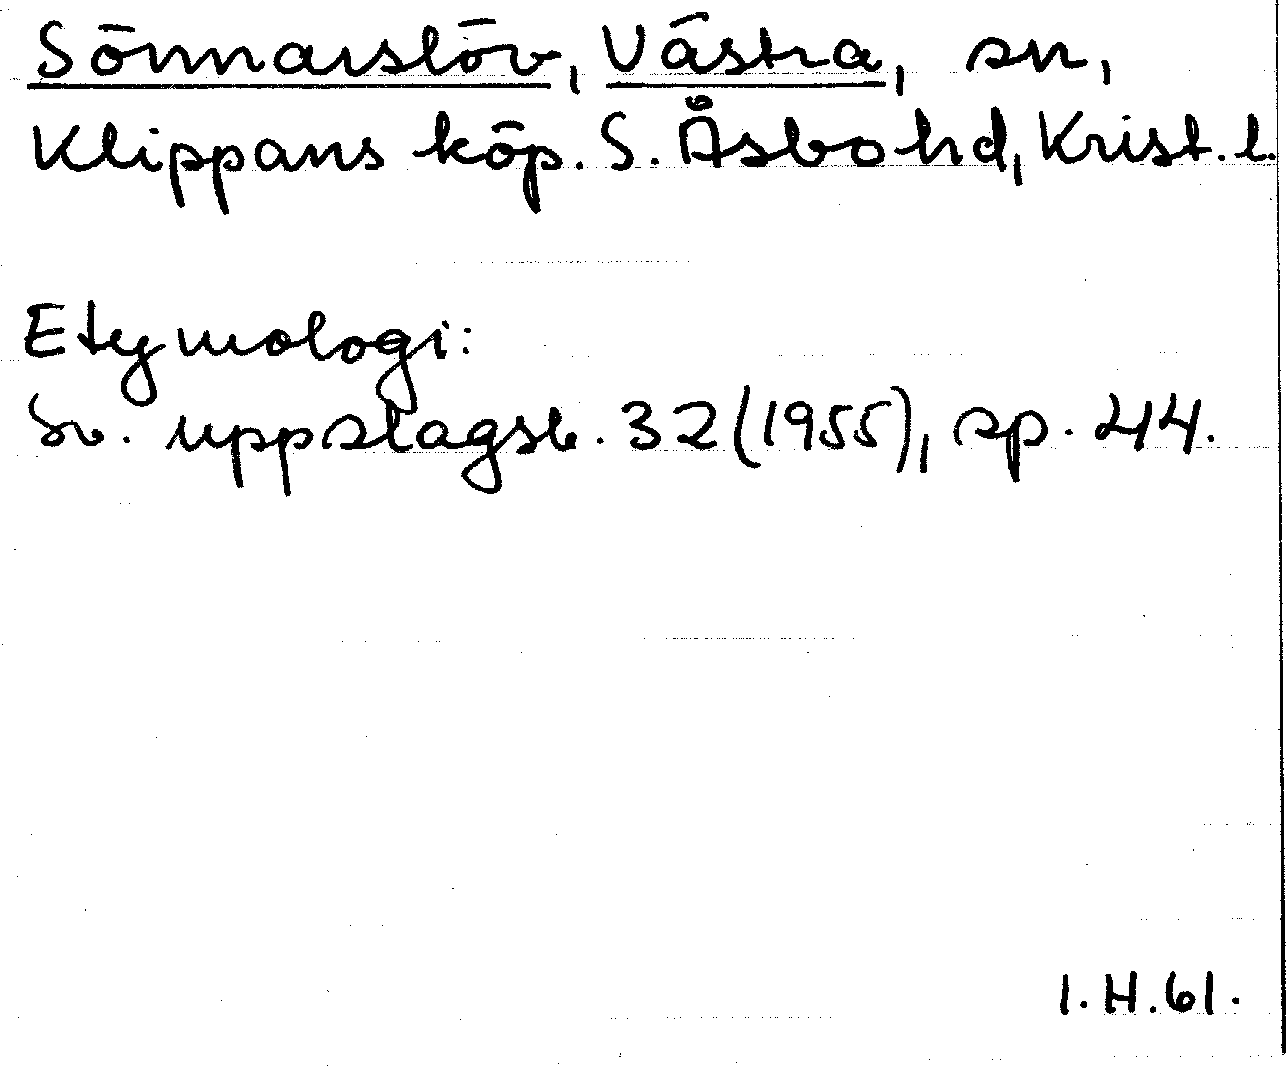 Sönnarslöv, Västra, sn,
Klippans köp. S. Åsbo hd, Krist. l.
Etymologi:
Sv. uppslagsb. 32 (1955), sp. 44.
I. H. 61.